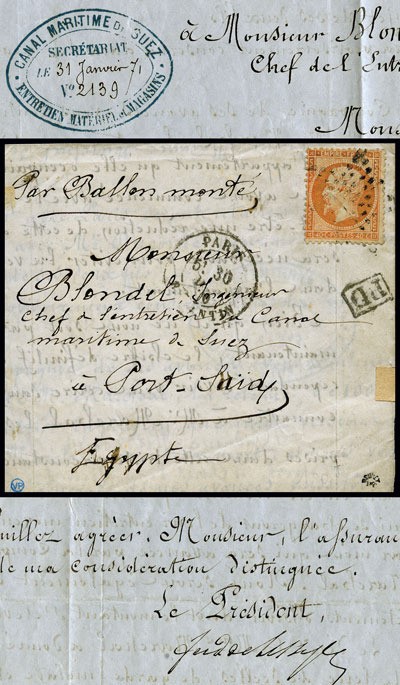 CANAL MARITIME DE SUEZ
SECRÉTARIAT
LE 31 Janvier 71
No 2139
ENTRETIEN MATÉRIEL & MAGASINS
à Monsieur Blon
Chef de l'Entr
Mons
Par Ballon monté
EMPIRE FRANC
40 C POSTES 40 C
PARIS
Monsieur
Blondel, Ingénieur
Chef de l'entretien du Canal
maritime de Suez
à Port-Saïd
Egypte
PD
VP
uillez agréer, Monsieur, l'assuran
de ma considération distinguée.
Le Président,